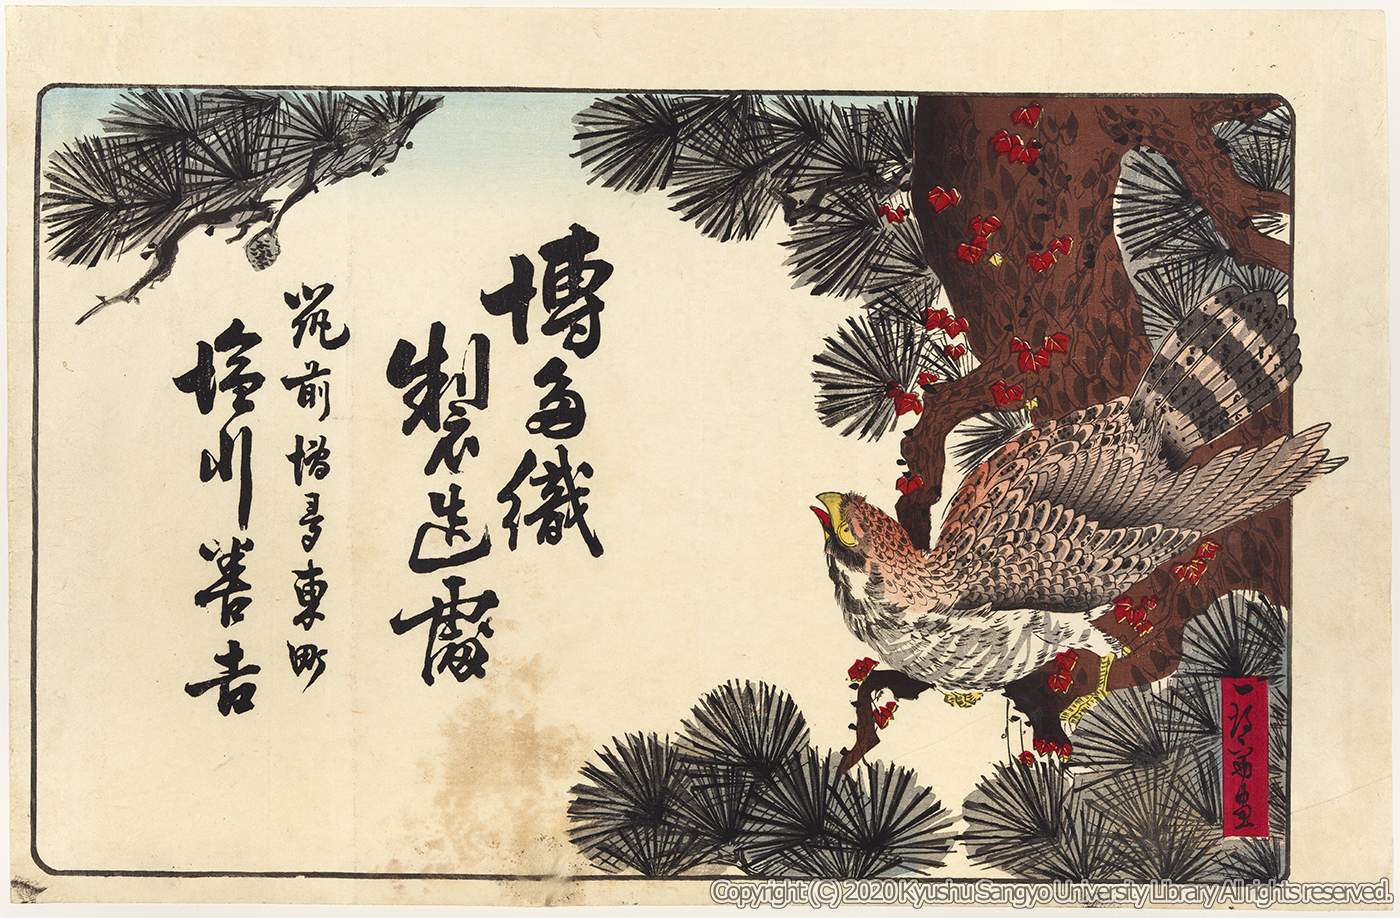 博多織
製造處
筑前博多東町
塩川善吉
Copyright (C) 2020 Kyushu Sangyo University Library All rights reserved.